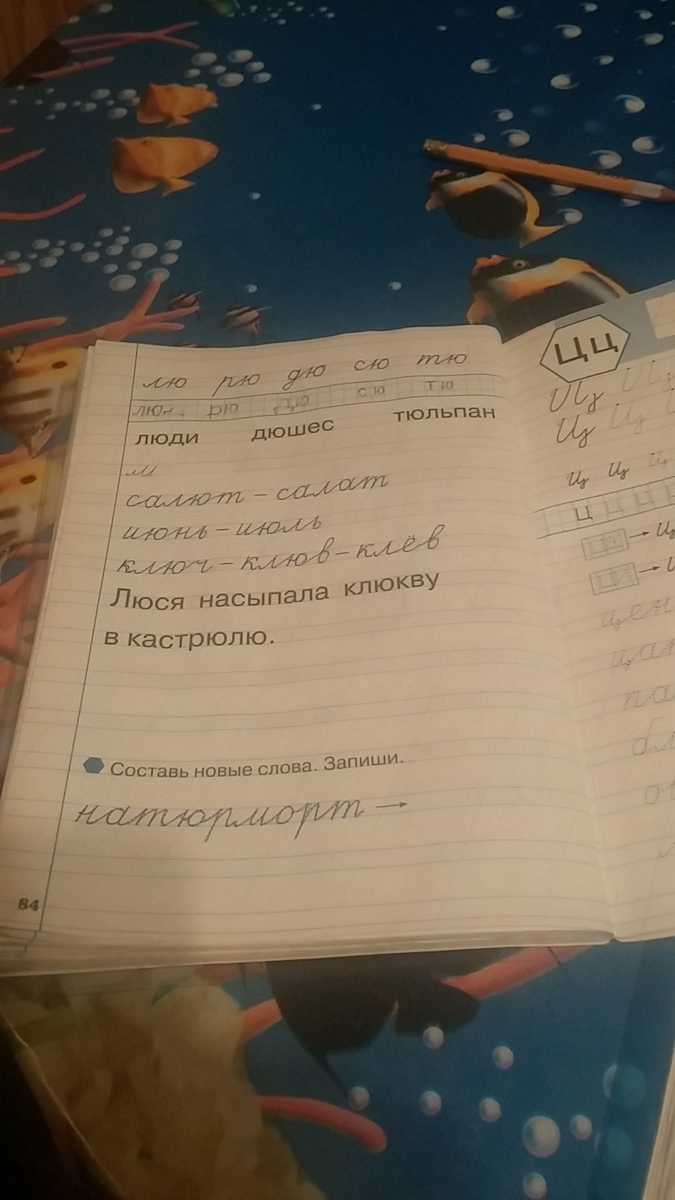 лю рю дю сю тю
лю рю дю сю тю
люди дюшес тюльпан
салют – салат
июнь – июль
ключ – клюв – клёв
Люся насыпала клюкву
в кастрюлю.
Составь новые слова. Запиши.
натюрморт →
84
Цц
Ц
ц ц
ц
ци →
цен
цар